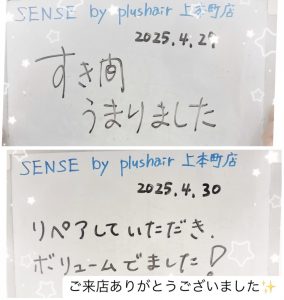 SENSE by plushair 上本町店
2025.4.27
すき間
うまりました
SENSE by plushair 上本町店
2025.4.30
リペアしていただき.
ボリュームでました!
ご来店ありがとうございました✨